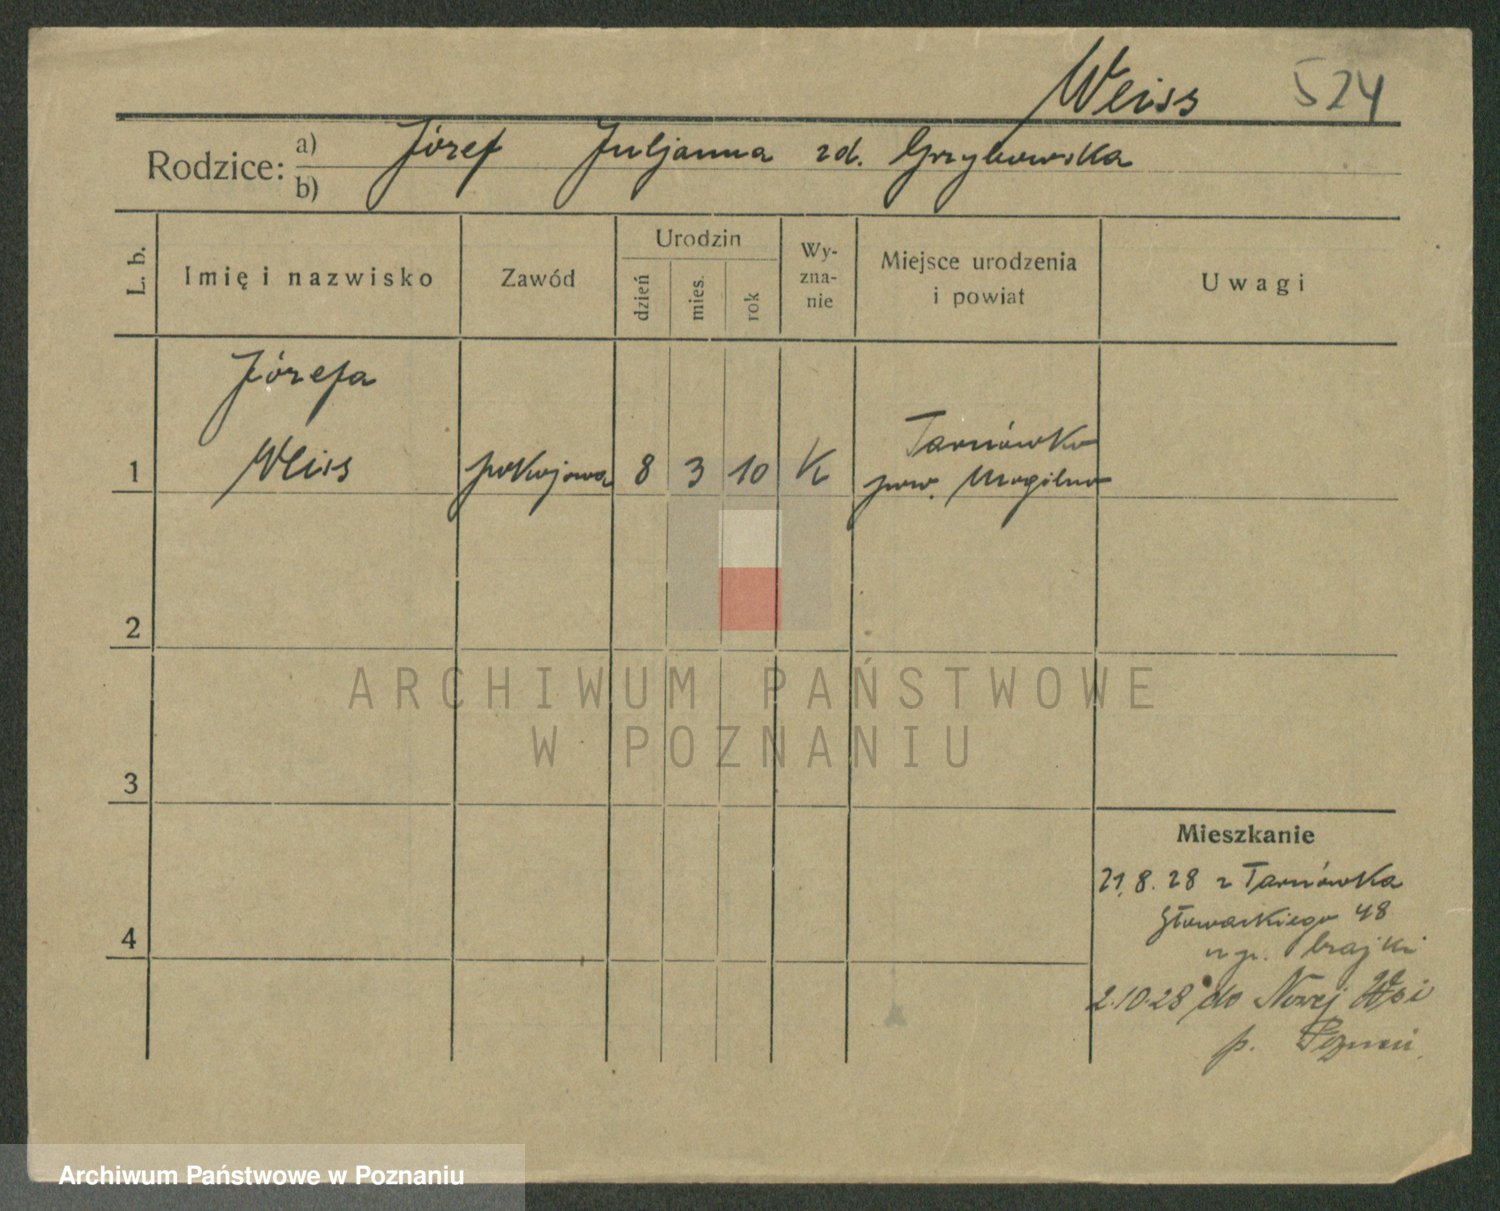 Weiss 524
Rodzice: a) Józef Juljanna zd. Grzybowska
b)
L. b. Imię i nazwisko Zawód Urodzin dzień mies. rok Wy-zna-nie Miejsce urodzenia i powiat Uwagi
Józefa
Tarnówko
1 Weiss pokojowa 8 3 10 K pow. Mogilno
2
ARCHIWUM PAŃSTWOWE
W POZNANIU
3
Mieszkanie
21.8.28 z Tarnówka
4 Słowackiego 48
u p.
2.10.28 do Nowej Wsi
p. Poznań
Archiwum Państwowe w Poznaniu